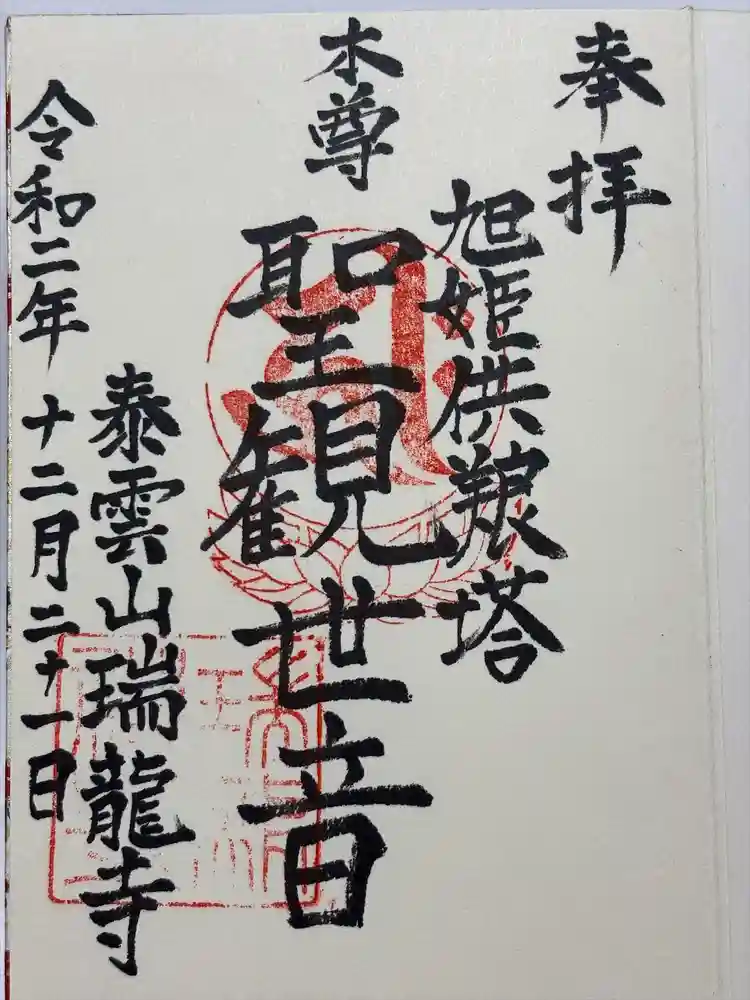 奉拝
旭姫供養塔
本尊
聖観世音
泰雲山瑞龍寺
令和二年 十二月二十一日